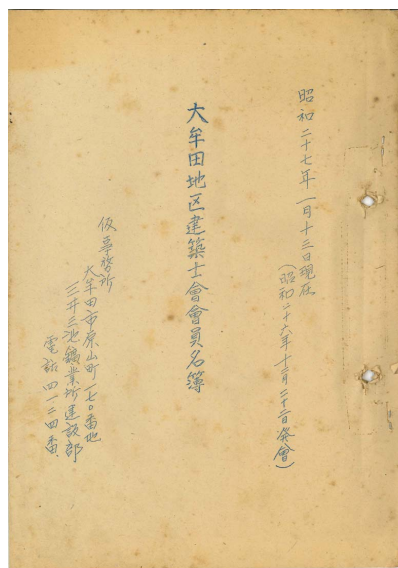 昭和二十七年一月十三日現在
(昭和二十六年十二月二十二日発會)
大牟田地区建築士會會員名簿
仮事務所
大牟田市原山町一七〇番地
三井三池鑛業所建設部
電話四一二四番